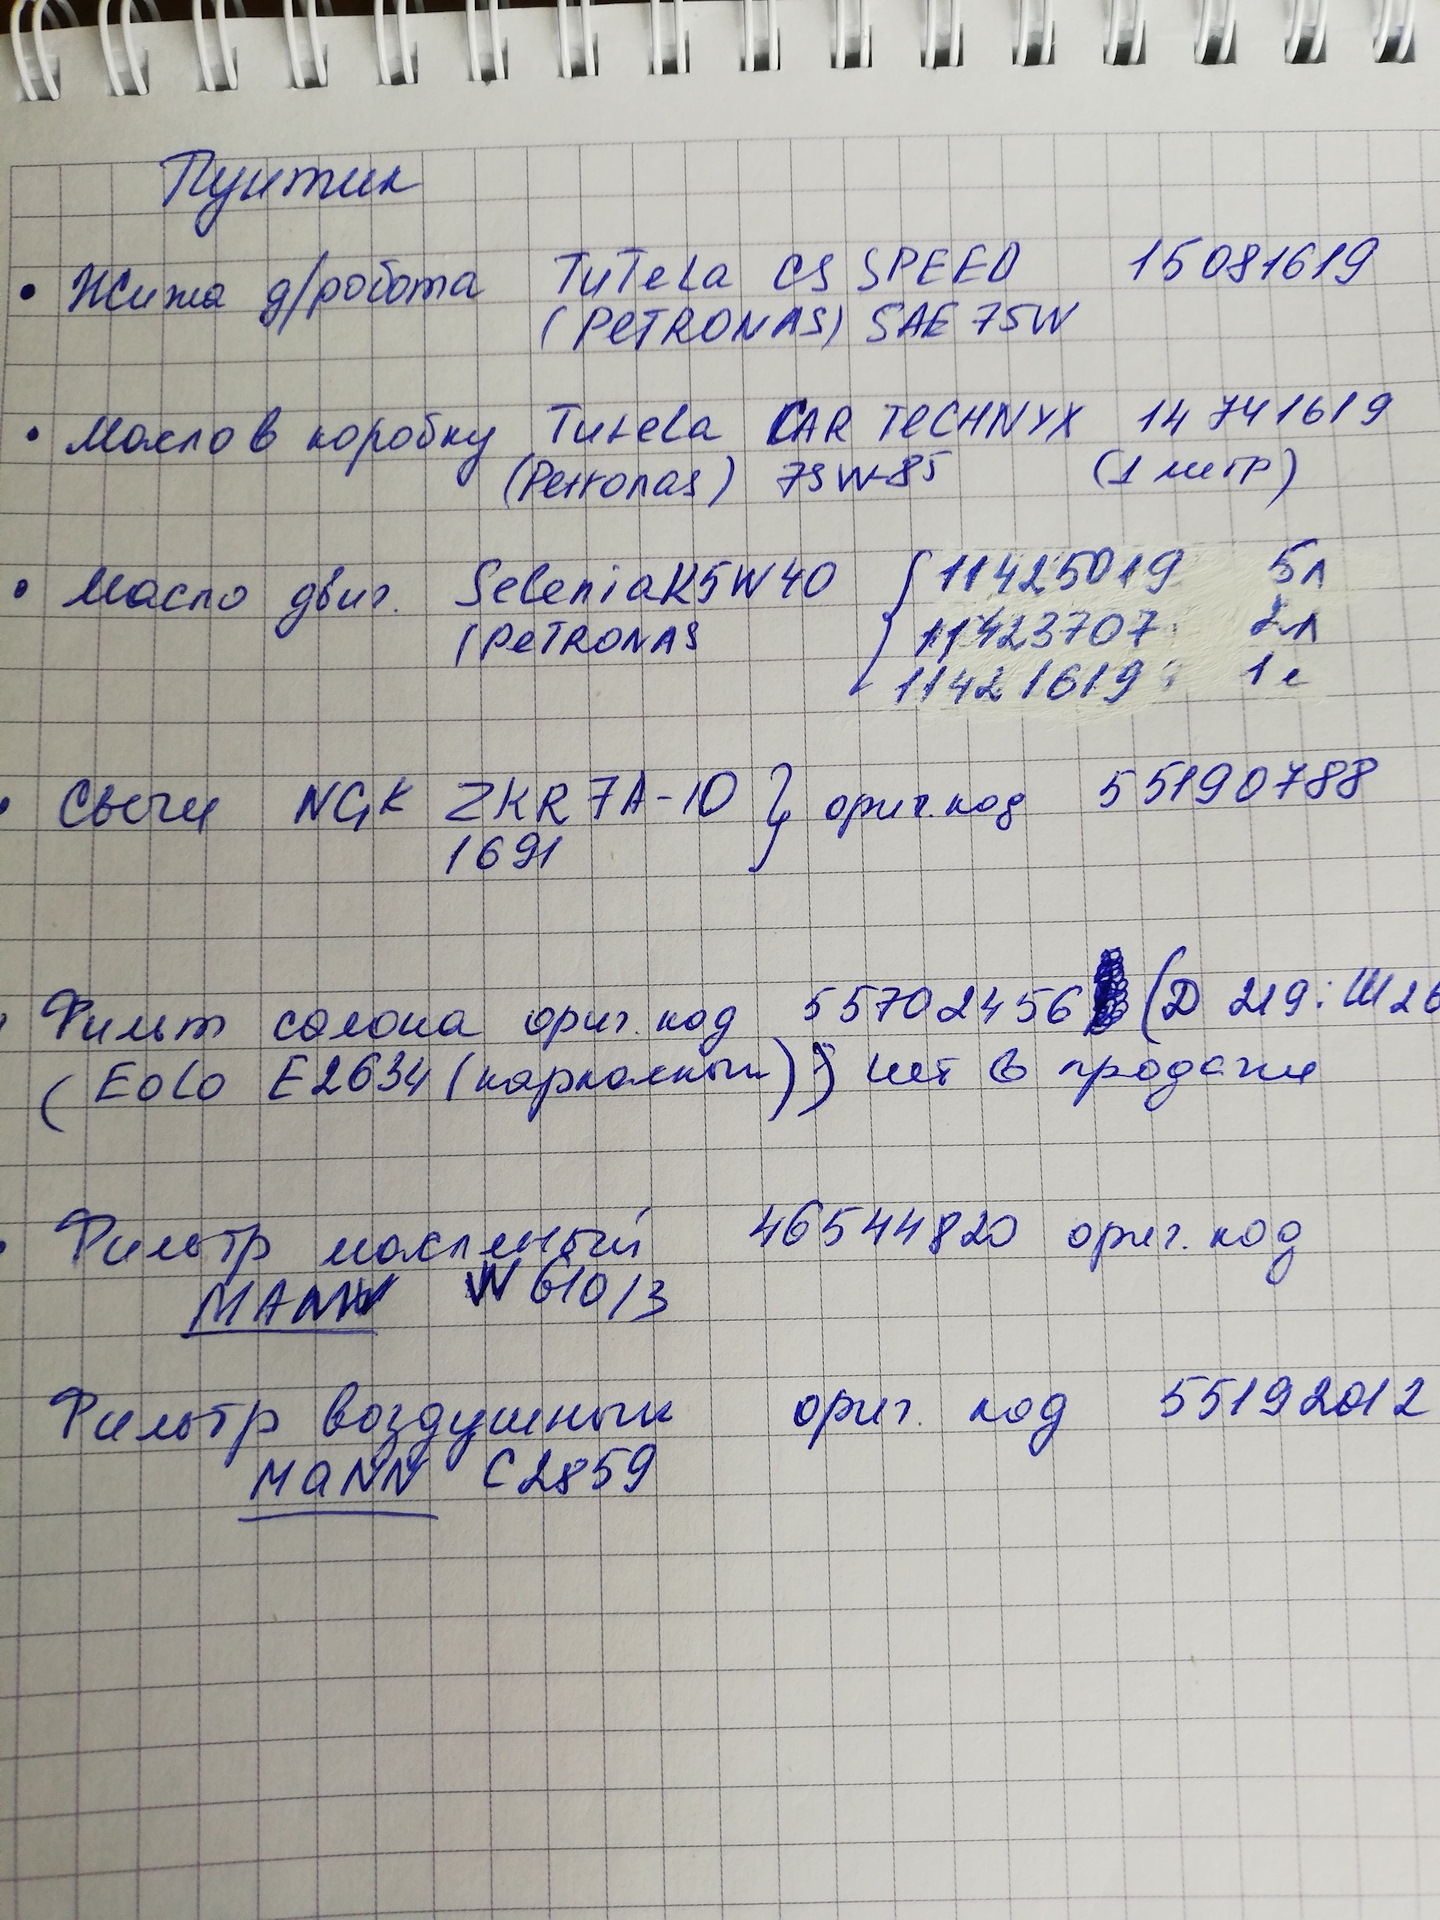 Пунтик
• Жижа д/робота TuTeLa CS SPEED 15081619
(PeTRONAS) SAE 75W
• Масло в коробку Tutela CAR TeCHNYX 14741619
(Petronas) 75W-85 (1 литр)
• Масло двиг. Selenia K 5W40 { 11425019 5л
(PeTRONAS 11423707 2л
11421619 1л
• Свечи NGK ZKR7A-10 } ориг. код 55190788
1691
• Фильт салона ориг. код 55702456 (Д 219: Ш 26
(Eolo E2634 (карполный)) нет в продаже
• Фильтр масляный 46544820 ориг. код
MANN W 610/3
Фильтр воздушный ориг. код 55192012
MaNN C2859